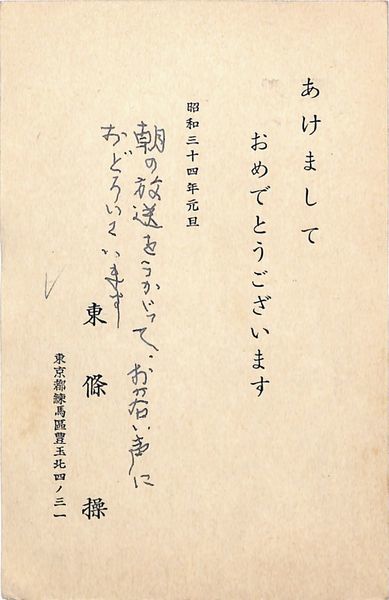 あけまして
おめでとうございます
昭和三十四年元旦
朝の放送をうかがって、お若い声に
おどろいています
東條操
東京都練馬區豊玉北四ノ三一